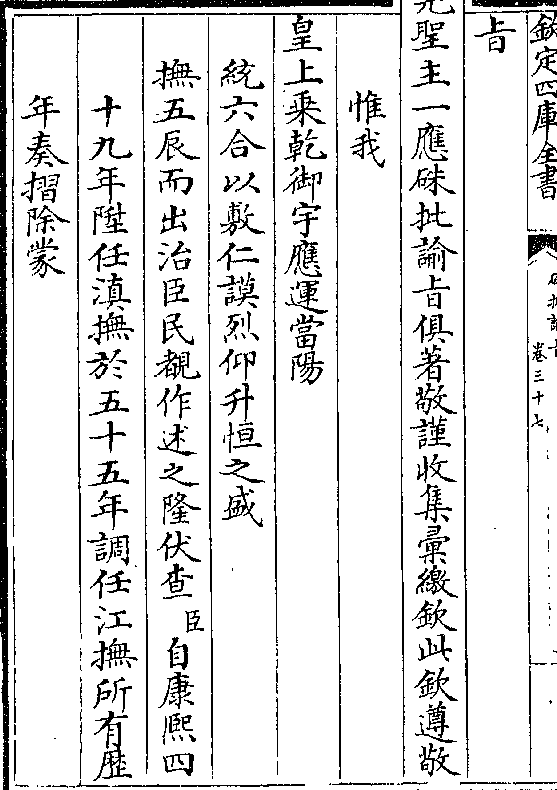 欽定四庫全書
卷三十七
旨
聖主一應硃批諭旨俱著敬謹收集彚繳欽此欽遵敬
惟我
皇上乘乾御宇應運當陽
統六合以敷仁謨烈仰升恒之盛
撫五辰而出治臣民覩作述之隆伏查臣自康熙四
十九年陞任滇撫於五十五年調任江撫所有歴
年奏摺除蒙